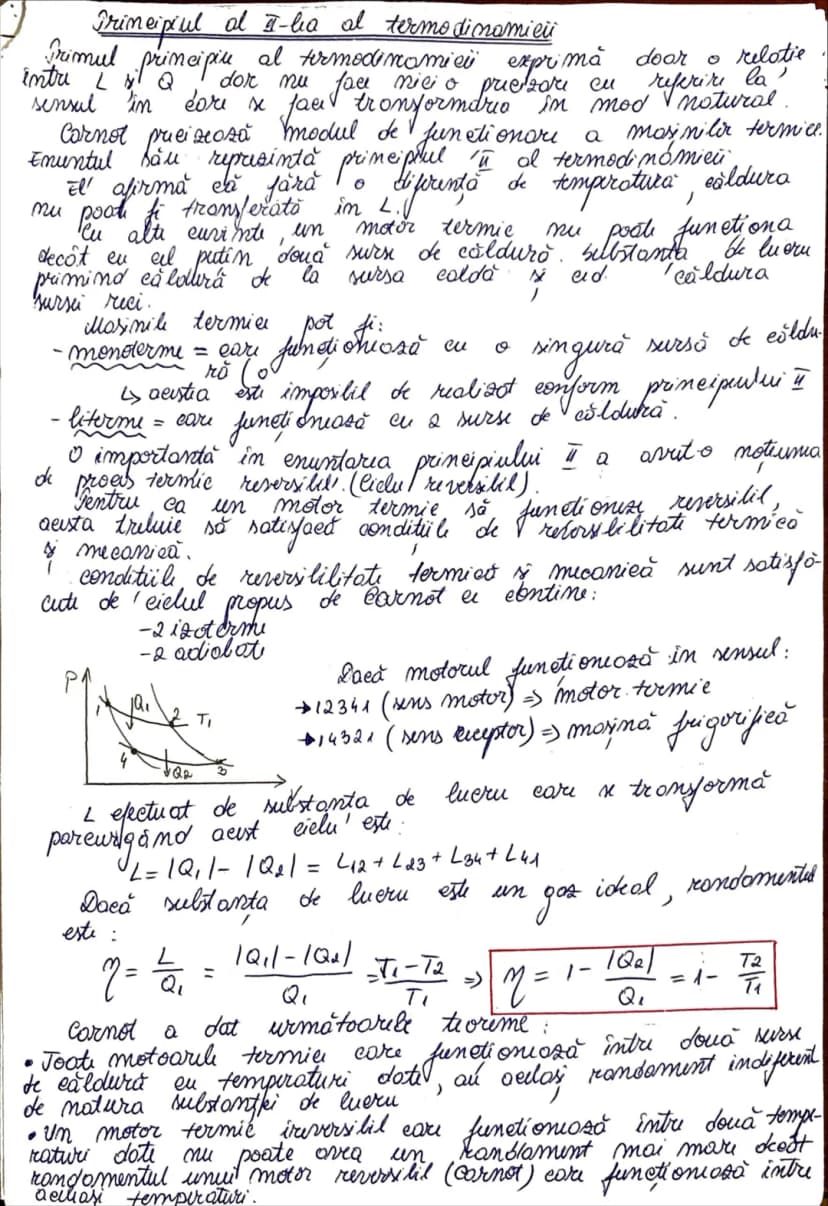 Principiul al II-lea al termodinamicii
Primul principiu al termodinamicii exprimă doar o relație
între L și Q, dar nu face nici o precizare cu referire la
sensul în care se face transformarea în mod natural.
Carnot precizează modul de funcționare a mașinilor termice.
Enunțul său reprezintă principiul II al termodinamicii
El afirmă că fără o diferență de temperatură, căldura
nu poate fi transferată în L.
Cu alte cuvinte, un motor termic nu poate funcționa
decât cu cel puțin două surse de căldură. Substanța de lucru
primind căldură de la sursa caldă și ced. căldura
sursei reci.
Mașinile termice pot fi:
- monoterme = care funcționează cu o singură sursă de căldu-
ră
↳ acestia este imposibil de realizat conform principiului II
- biterme = care funcționează cu 2 surse de căldură.
O importantă în enunțarea principiului II a avut-o noțiunea
de proces termic reversibil. (Ciclu reversibil).
Pentru ca un motor termic să funcționeze reversibil,
acesta trebuie să satisfacă condițiile de reversibilitate termică
și mecanică.
Condițiile de reversibilitate termică și mecanică sunt satisfă-
cute de ciclul propus de Carnot ce conține:
-2 izoterme
-2 adiabate
Dacă motorul funcționează în sensul:
→12341 (sens motor) => motor termic
→14321 (sens receptor) => mașină frigorifică
P
1 Q1 2 T1
4 Q2 3
L efectuat de substanța de lucru care se transformă
parcurgând acest ciclu este:
L = |Q1| - |Q2| = L12 + L23 + L34 + L41
Dacă substanța de lucru este un gaz ideal, randamentul
este:
η = L/Q1 = (|Q1| - |Q2|)/Q1 = (T1 - T2)/T1 => η = 1 - |Q2|/Q1 = 1 - T2/T1
Carnot a dat următoarele teoreme:
• Toate motoarele termice care funcționează între două surse
de căldură cu temperaturi date, au același randament indiferent
de natura substanței de lucru
• Un motor termic ireversibil care funcționează între două tempe-
raturi date nu poate avea un randament mai mare decât
randamentul unui motor reversibil (Carnot) care funcționează între
aceleași temperaturi.